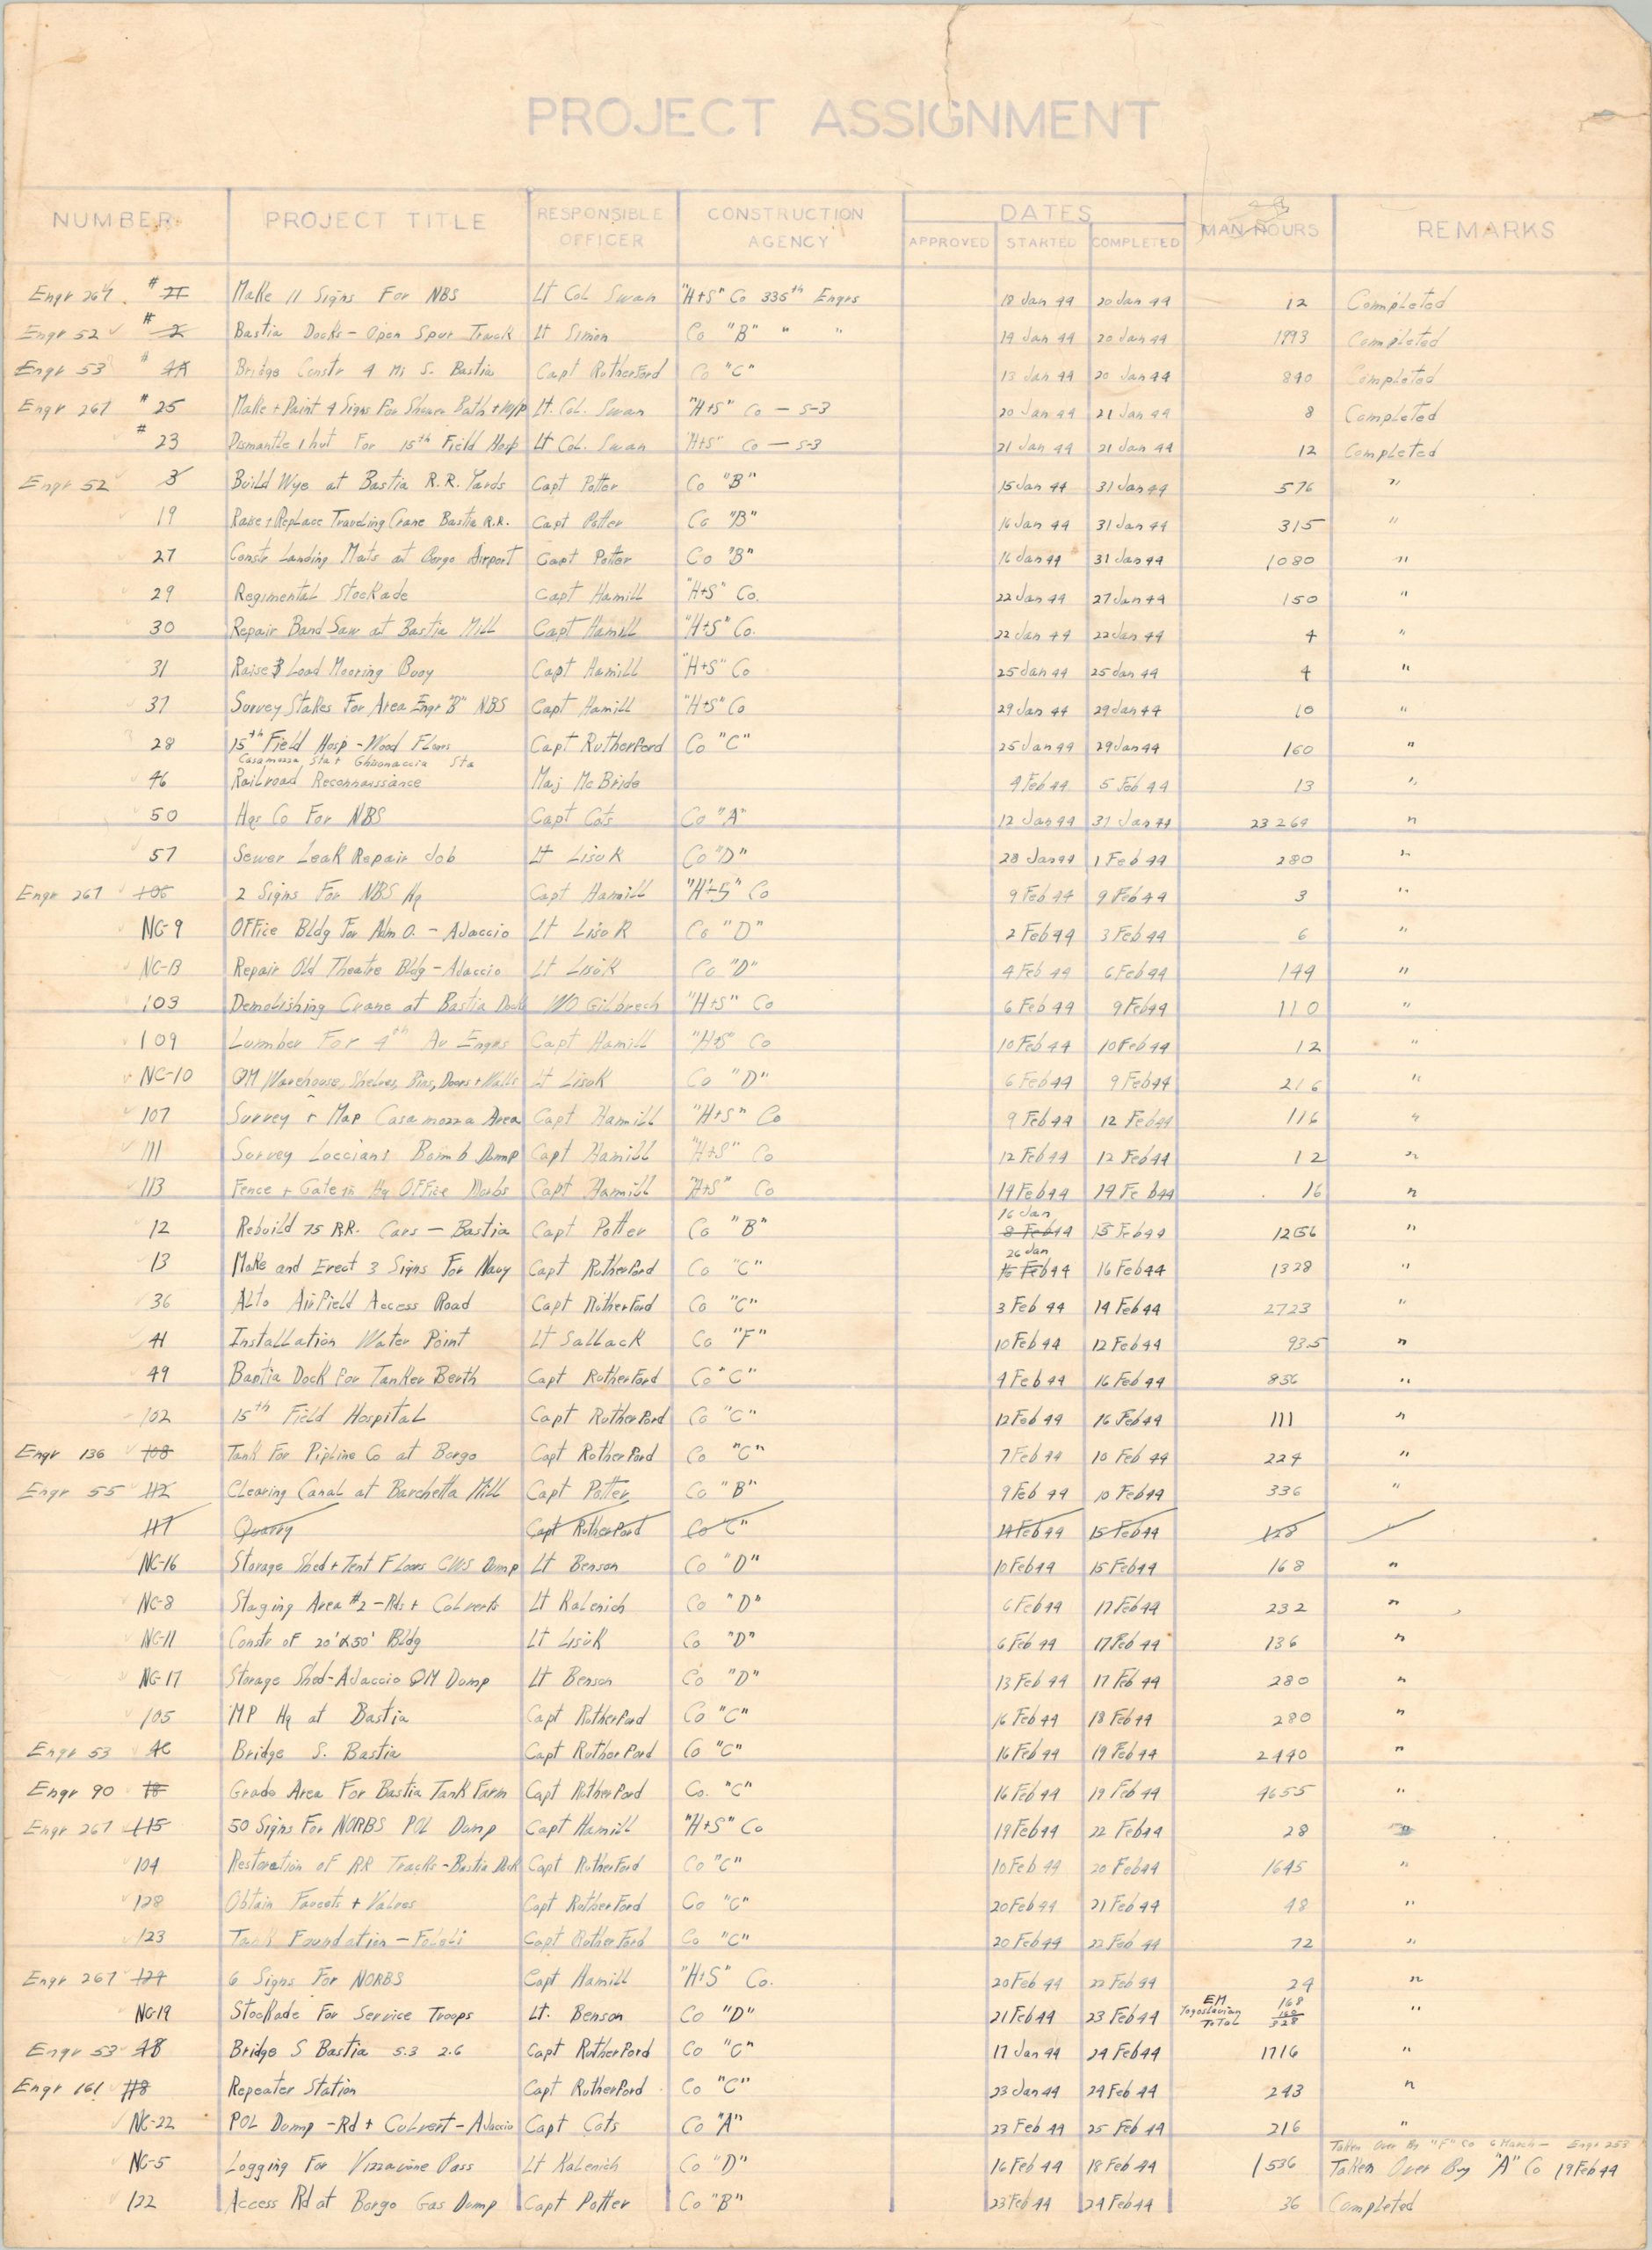 PROJECT ASSIGNMENT
NUMBER PROJECT TITLE RESPONSIBLE OFFICER CONSTRUCTION AGENCY DATES APPROVED STARTED COMPLETED MAN HOURS REMARKS
Engr 267 # 21 Make 11 Signs For NBS Lt Col Swan "H+S" Co 335th Engrs 18 Jan 44 20 Jan 44 12 Completed
Engr 52 # 2 Bastia Docks - Open Spur Track Lt Simon Co "B" " " 19 Jan 44 20 Jan 44 1993 Completed
Engr 53 # 4A Bridge Constr 4 Mi S. Bastia Capt Rutherford Co "C" 13 Jan 44 20 Jan 44 840 Completed
Engr 267 # 25 Make + Paint 4 Signs For Shower Bath + W/P Lt. Col. Swan "H+S" Co - S-3 20 Jan 44 21 Jan 44 8 Completed
# 23 Dismantle 1 hut For 15th Field Hosp Lt Col. Swan "H+S" Co - S-3 21 Jan 44 21 Jan 44 12 Completed
Engr 52 3 Build Wye at Bastia R.R. Yards Capt Potter Co "B" 15 Jan 44 31 Jan 44 576 "
19 Raise + Replace Traveling Crane Bastia R.R. Capt Potter Co "B" 16 Jan 44 31 Jan 44 315 "
27 Constr Landing Mats at Borgo Airport Capt Potter Co "B" 16 Jan 44 31 Jan 44 1080 "
29 Regimental Stockade Capt Hamill "H+S" Co. 22 Jan 44 27 Jan 44 150 "
30 Repair Band Saw at Bastia Mill Capt Hamill "H+S" Co. 22 Jan 44 22 Jan 44 4 "
31 Raise & Load Mooring Buoy Capt Hamill "H+S" Co 25 Jan 44 25 Jan 44 4 "
37 Survey Stakes For Area Engr "B" NBS Capt Hamill "H+S" Co 29 Jan 44 29 Jan 44 10 "
28 15th Field Hosp - Wood Floors Capt Rutherford Co "C" 25 Jan 44 29 Jan 44 160 "
Casamozza Sta + Ghisonaccia Sta
46 Railroad Reconnaissiance Maj McBride 4 Feb 44 5 Feb 44 13 "
50 Hqs Co For NBS Capt Cots Co "A" 12 Jan 44 31 Jan 44 23 269 "
57 Sewer Leak Repair Job Lt Lisok Co "D" 28 Jan 44 1 Feb 44 280 "
Engr 267 106 2 Signs For NBS Hq Capt Hamill "H+S" Co 9 Feb 44 9 Feb 44 3 "
NC-9 Office Bldg For Adm O. - Adaccio Lt Lisok Co "D" 2 Feb 44 3 Feb 44 6 "
NC-13 Repair Old Theatre Bldg - Adaccio Lt Lisok Co "D" 4 Feb 44 6 Feb 44 144 "
103 Demolishing Crane at Bastia Dock WO Gilbrech "H+S" Co 6 Feb 44 9 Feb 44 110 "
109 Lumber For 4th Av Engrs Capt Hamill "H+S" Co 10 Feb 44 10 Feb 44 12 "
NC-10 QM Warehouse, Shelves, Bins, Doors + Walls Lt Lisok Co "D" 6 Feb 44 9 Feb 44 216 "
107 Survey + Map Casamozza Area Capt Hamill "H+S" Co 9 Feb 44 12 Feb 44 116 "
111 Survey Lucciani Bomb Dump Capt Hamill "H+S" Co 12 Feb 44 12 Feb 44 12 "
113 Fence + Gate in Hq Office Norbs Capt Hamill "H+S" Co 14 Feb 44 14 Feb 44 16 "
12 Rebuild 75 RR. Cars - Bastia Capt Potter Co "B" 16 Jan 8 Feb 44 15 Feb 44 1256 "
13 Make and Erect 3 Signs For Navy Capt Rutherford Co "C" 26 Jan 16 Feb 44 16 Feb 44 1328 "
36 Alto Airfield Access Road Capt Rutherford Co "C" 3 Feb 44 14 Feb 44 2723 "
41 Installation Water Point Lt Sallack Co "F" 10 Feb 44 12 Feb 44 93.5 "
49 Bastia Dock For Tanker Berth Capt Rutherford Co "C" 4 Feb 44 16 Feb 44 856 "
102 15th Field Hospital Capt Rutherford Co "C" 12 Feb 44 16 Feb 44 111 "
Engr 136 108 Tank For Pipline Co at Borgo Capt Rutherford Co "C" 7 Feb 44 10 Feb 44 224 "
Engr 55 112 Clearing Canal at Barchetta Mill Capt Potter Co "B" 9 Feb 44 10 Feb 44 336 "
117 Quarry Capt Rutherford Co "C" 14 Feb 44 15 Feb 44 128
NC-16 Storage Shed + Tent Floors CWS Dump Lt Benson Co "D" 10 Feb 44 15 Feb 44 168 "
NC-8 Staging Area #2 - Rds + Culverts Lt Kalenich Co "D" 6 Feb 44 17 Feb 44 232 "
NC-11 Constr of 20' X 50' Bldg Lt Lisok Co "D" 6 Feb 44 17 Feb 44 136 "
NC-17 Storage Shed - Adaccio QM Dump Lt Benson Co "D" 13 Feb 44 17 Feb 44 280 "
105 MP Hq at Bastia Capt Rutherford Co "C" 16 Feb 44 18 Feb 44 280 "
Engr 53 4C Bridge S. Bastia Capt Rutherford Co "C" 16 Feb 44 19 Feb 44 2440 "
Engr 90 18 Grade Area For Bastia Tank Farm Capt Rutherford Co. "C" 16 Feb 44 19 Feb 44 4655 "
Engr 267 115 50 Signs For NORBS POL Dump Capt Hamill "H+S" Co 19 Feb 44 22 Feb 44 28
104 Restoration of RR Tracks - Bastia Dock Capt Rutherford Co "C" 10 Feb 44 20 Feb 44 1645 "
128 Obtain Faucets + Valves Capt Rutherford Co "C" 20 Feb 44 21 Feb 44 48 "
123 Tank Foundation - Capt Rutherford Co "C" 20 Feb 44 22 Feb 44 72 "
Engr 267 124 6 Signs For NORBS Capt Hamill "H+S" Co. 20 Feb 44 22 Feb 44 24 "
NC-19 Stockade For Service Troops Lt. Benson Co "D" 21 Feb 44 23 Feb 44 EM 168 Yogoslavian 160 Total 328 "
Engr 53 4B Bridge S Bastia 5.3 2.6 Capt Rutherford Co "C" 17 Jan 44 24 Feb 44 1716 "
Engr 161 118 Repeater Station Capt Rutherford Co "C" 23 Jan 44 24 Feb 44 243 "
NC-22 POL Dump - Rd + Culvert - Adaccio Capt Cots Co "A" 23 Feb 44 25 Feb 44 216 "
Taken Over By "F" Co 6 March - Engr 253
NC-5 Logging For Vizzavone Pass Lt Kalenich Co "D" 16 Feb 44 18 Feb 44 1536 Taken Over By "A" Co 19 Feb 44
122 Access Rd at Borgo Gas Dump Capt Potter Co "B" 23 Feb 44 24 Feb 44 36 Completed